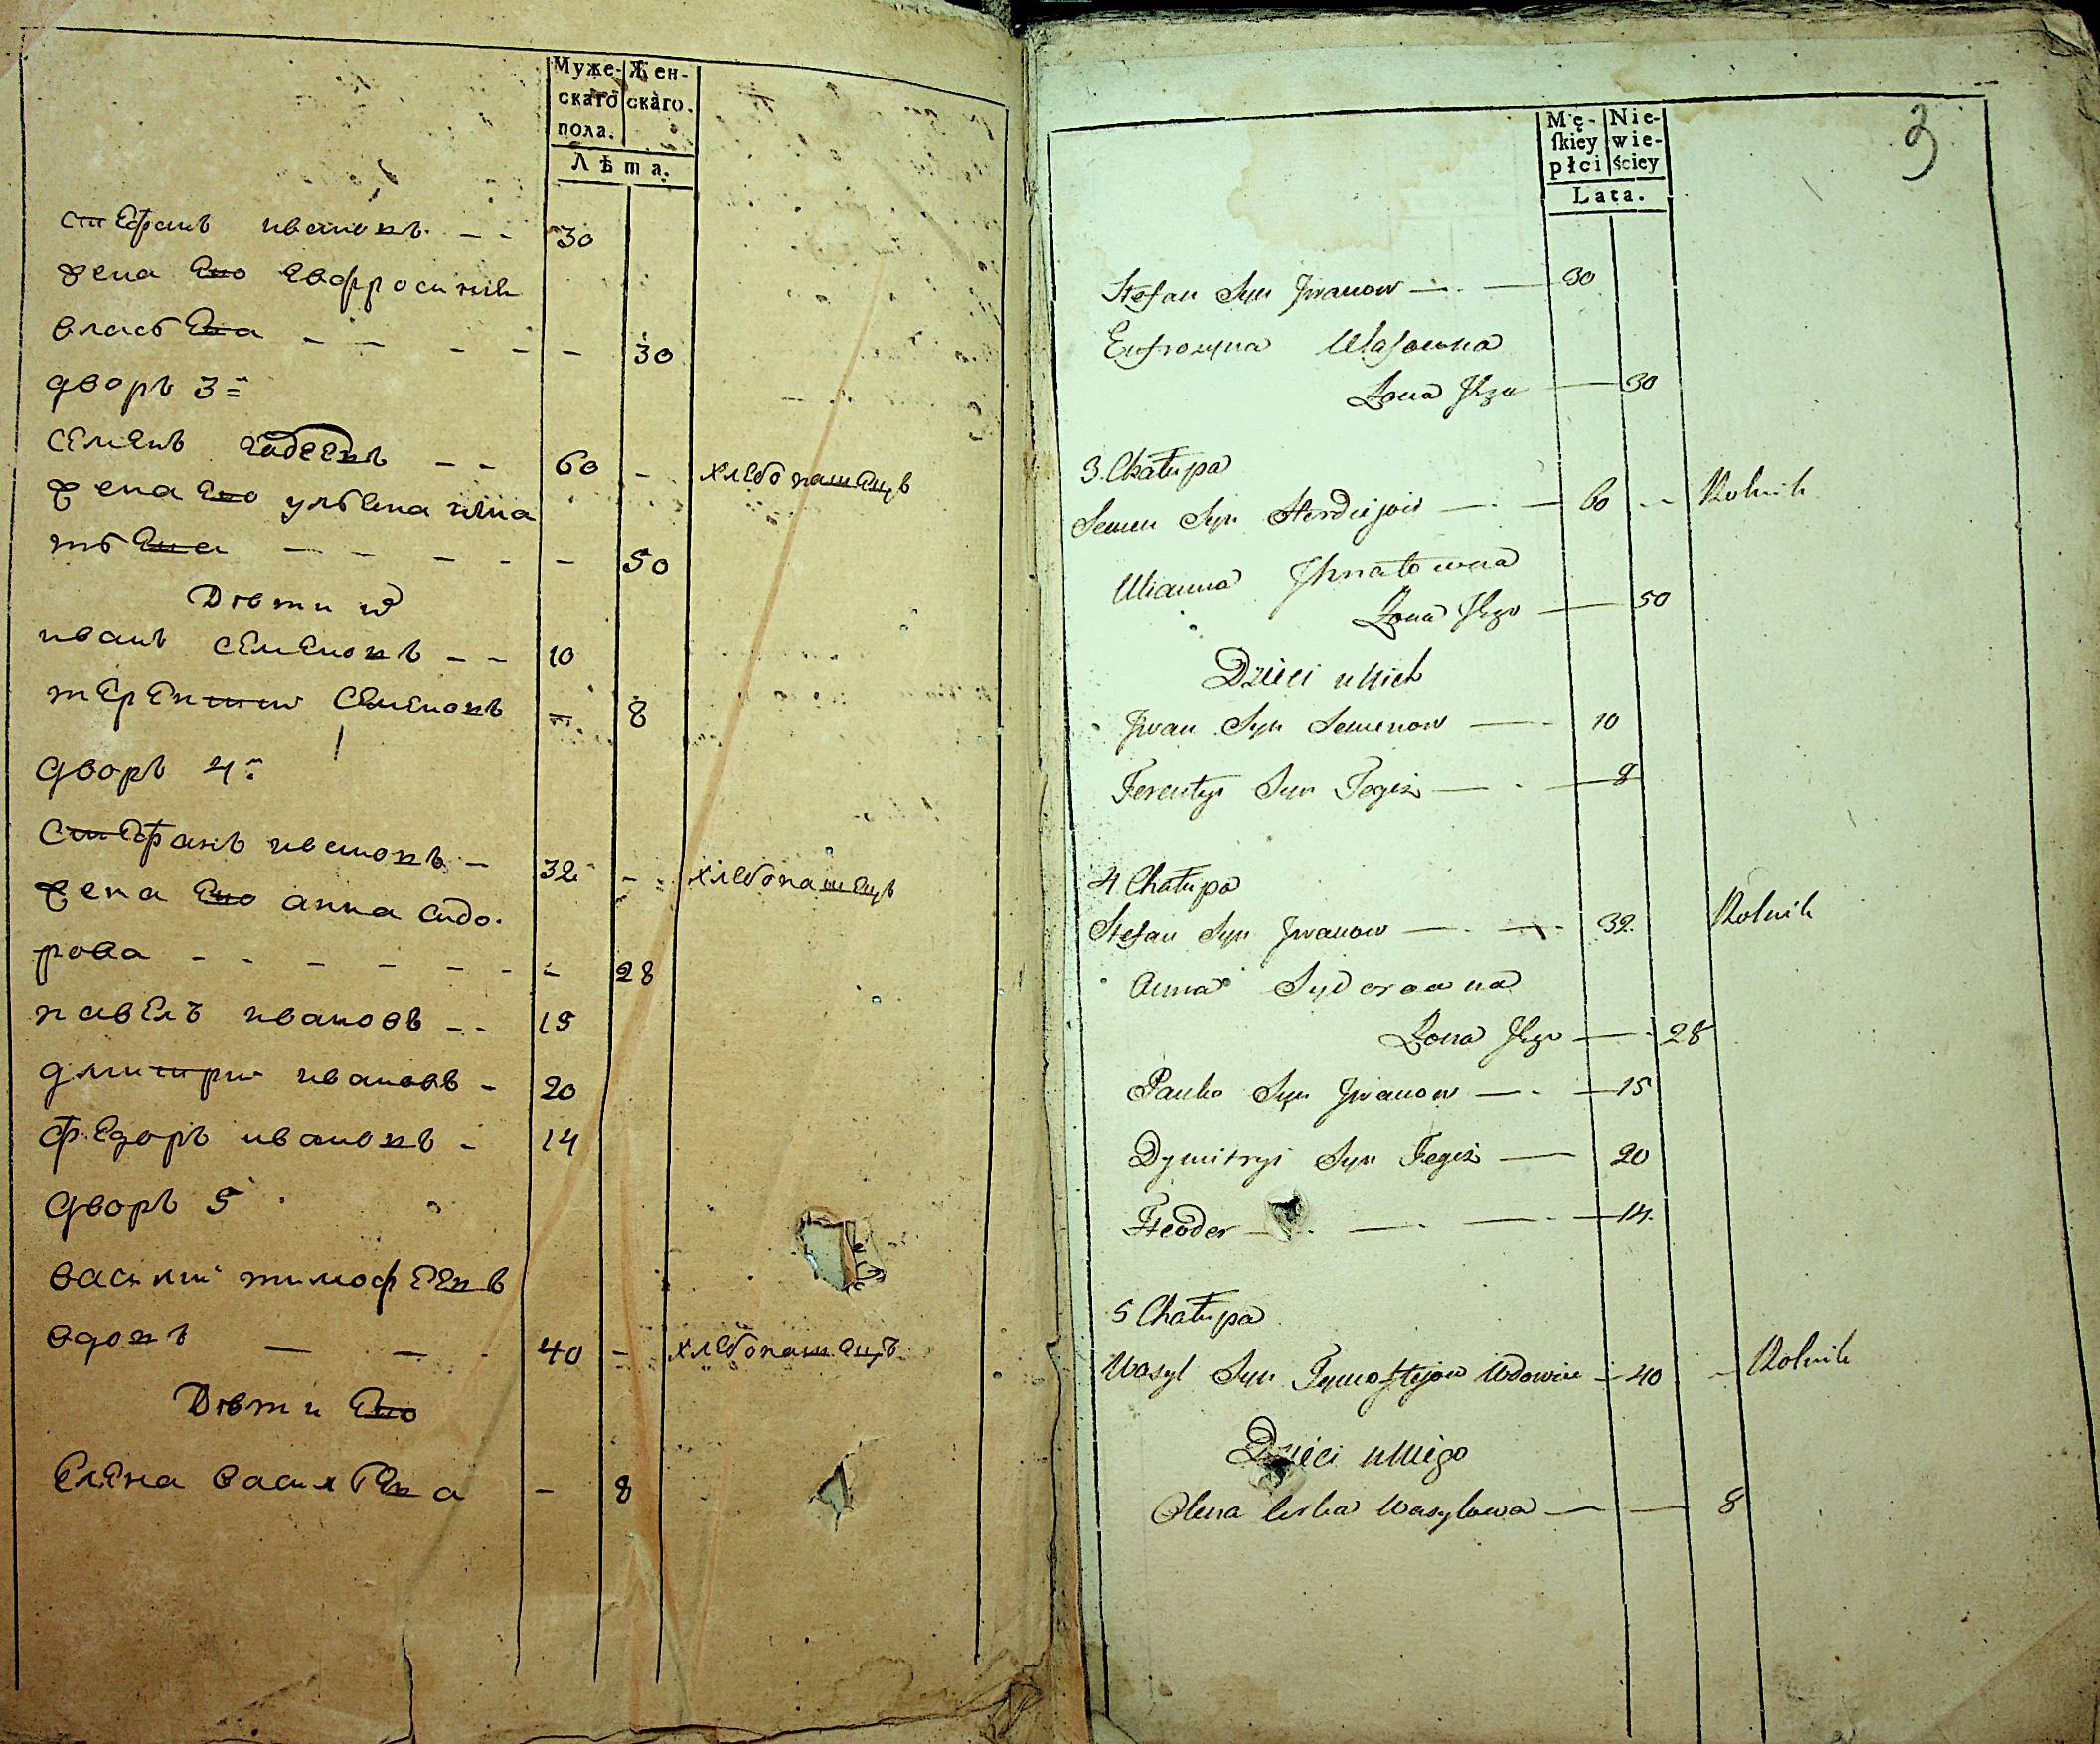 Муже- Жен-
скаго скаго.
пола.
Лѣта.
стефанъ ивановъ. - - 30
жена ево евфросинiя
власьева - - - - - 30
дворъ 3=
семенъ - - 60 - хлебопашецъ
жена ево ульяна игна
тьева - - - - - 50
Дѣти
иванъ семеновъ - - 10
терентии семеновъ - 8
дворъ 4:
стефанъ ивановъ - 32 - хлебопашецъ
жена ево анна сидо-
рова - - - - - - - 28
павелъ ивановъ - - 15
дмитри ивановъ - 20
федоръ ивановъ - 14
дворъ 5
василий тимофеевъ
вдовъ — - 40 - хлебопашецъ
Дѣти ево
Елена васильева - 8
3
Mę- Nie-
ſkiey wie-
płci ściey
Lata.
Stefan Syn Jwanow — . — 30
Eufrozyna Własowna
Żona Jego — 30
3. Chałupa
Semen Syn — . — 60 - - Rolnik
Ulianna Jhnatowna
Żona Jego — 50
Dzieci u Nich
Jwan Syn Semenow — . 10
Terentyi Syn Tegiż — . — 8
4 Chałupa
Stefan Syn Jwanow — . — . 32. Rolnik
Anna Sydorowna
Żona Jego — . 28
Pawło Syn Jwanow — . — 15
Dymitryi Syn Tegiż — 20
Fteoder — . — . — . — 14.
5 Chałupa
Wasyl Syn Tymofteiow Wdowiec — 40 - Rolnik
Dzieci u Niego
Olena Curka Wasylowa — — 8